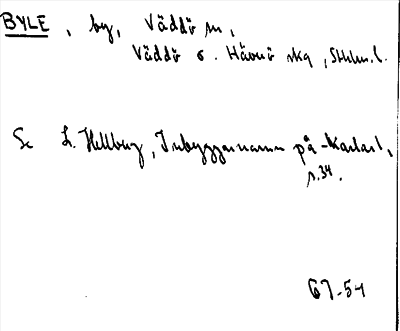 BYLE, by, Väddö sn,
Väddö o. Häverö skg, Sthlm. l.
Se L. Hellberg, Inbyggarnamn på -karlar,
s. 34.
67-54